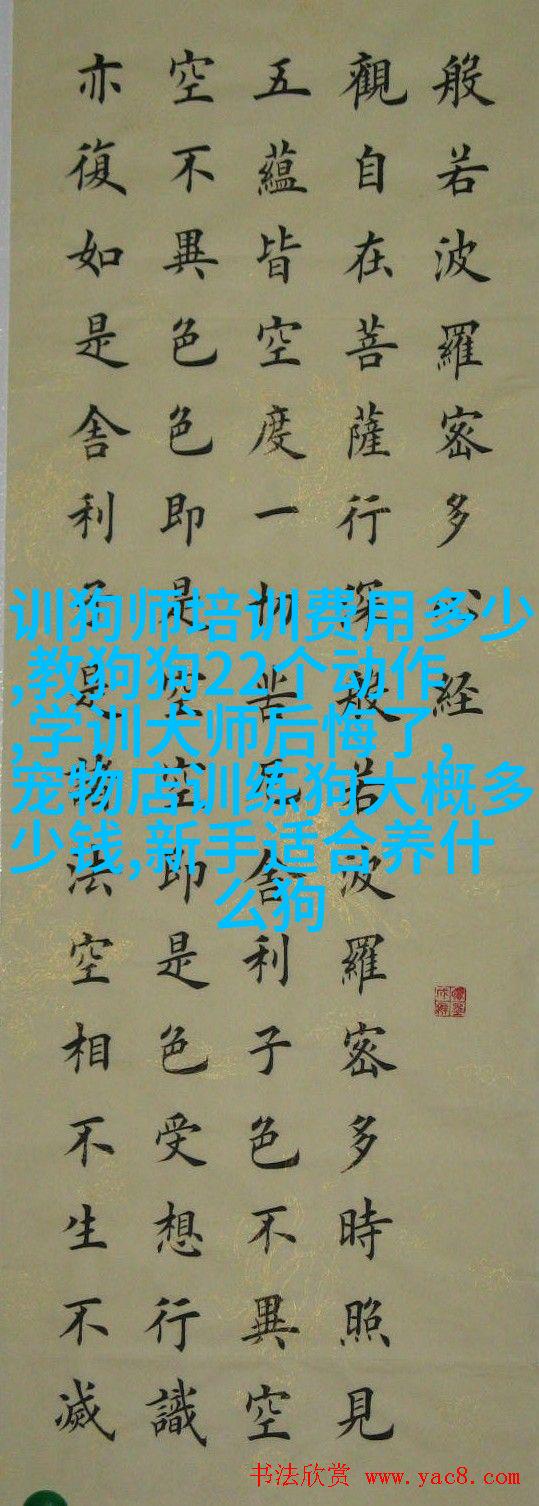 般若波羅密多心経
觀自在菩薩行深般若波羅密多時照見
五蘊皆空度一切苦厄舍利子色不異空
空不異色色即是空空即是色受想行識
亦復如是舍利子是諸法空相不生不滅
训狗师培训费用多少
,教狗狗22个动作
,学训犬师后悔了,
宠物店训练狗大概多
少钱,新手适合养什
么狗
书法欣赏 www.yac8.com